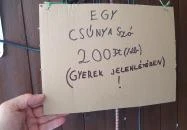 EGY
CSÚNYA SZÓ
200 Ft (/db)
(GYEREK JELENLÉTÉBEN)
!